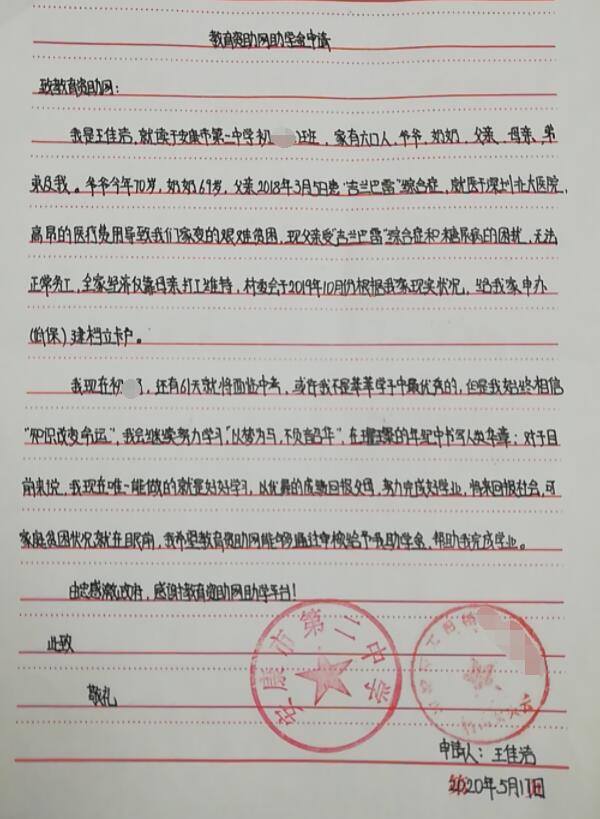 教育资助网助学金申请
致教育资助网：
我是王佳浩，就读于安康市第二中学初班，家有六口人，爷爷、奶奶、父亲、母亲、弟
弟及我。爷爷今年70岁，奶奶69岁，父亲2018年3月5日患“吉兰巴雷”综合症，就医于深圳北大医院，
高昂的医疗费用导致我们家变的艰难贫困，现父亲受“吉兰巴雷”综合症和糖尿病的困扰，无法
正常务工，全家经济仅靠母亲打工维持，村委会于2019年10月份根据我家现实状况，给我家申办
(低保)建档立卡户。
我现在初了，还有61天就将面临中考，或许我不是莘莘学子中最优秀的，但是我始终相信
“知识改变命运”，我会继续努力学习，“以梦为马，不负韶华”，在璀璨的年纪中书写人类华章；对于目
前来说，我现在唯一能做的就是好好学习，以优异的成绩回报父母，努力完成好学业，将来回报社会，可
家庭贫困状况就在眼前，我希望教育资助网能够通过审核给予我助学金，帮助我完成学业。
由忠感激政府，感谢教育资助网助学平台！
此致
敬礼
安康市第二中学
申请人：王佳浩
2020年5月17日